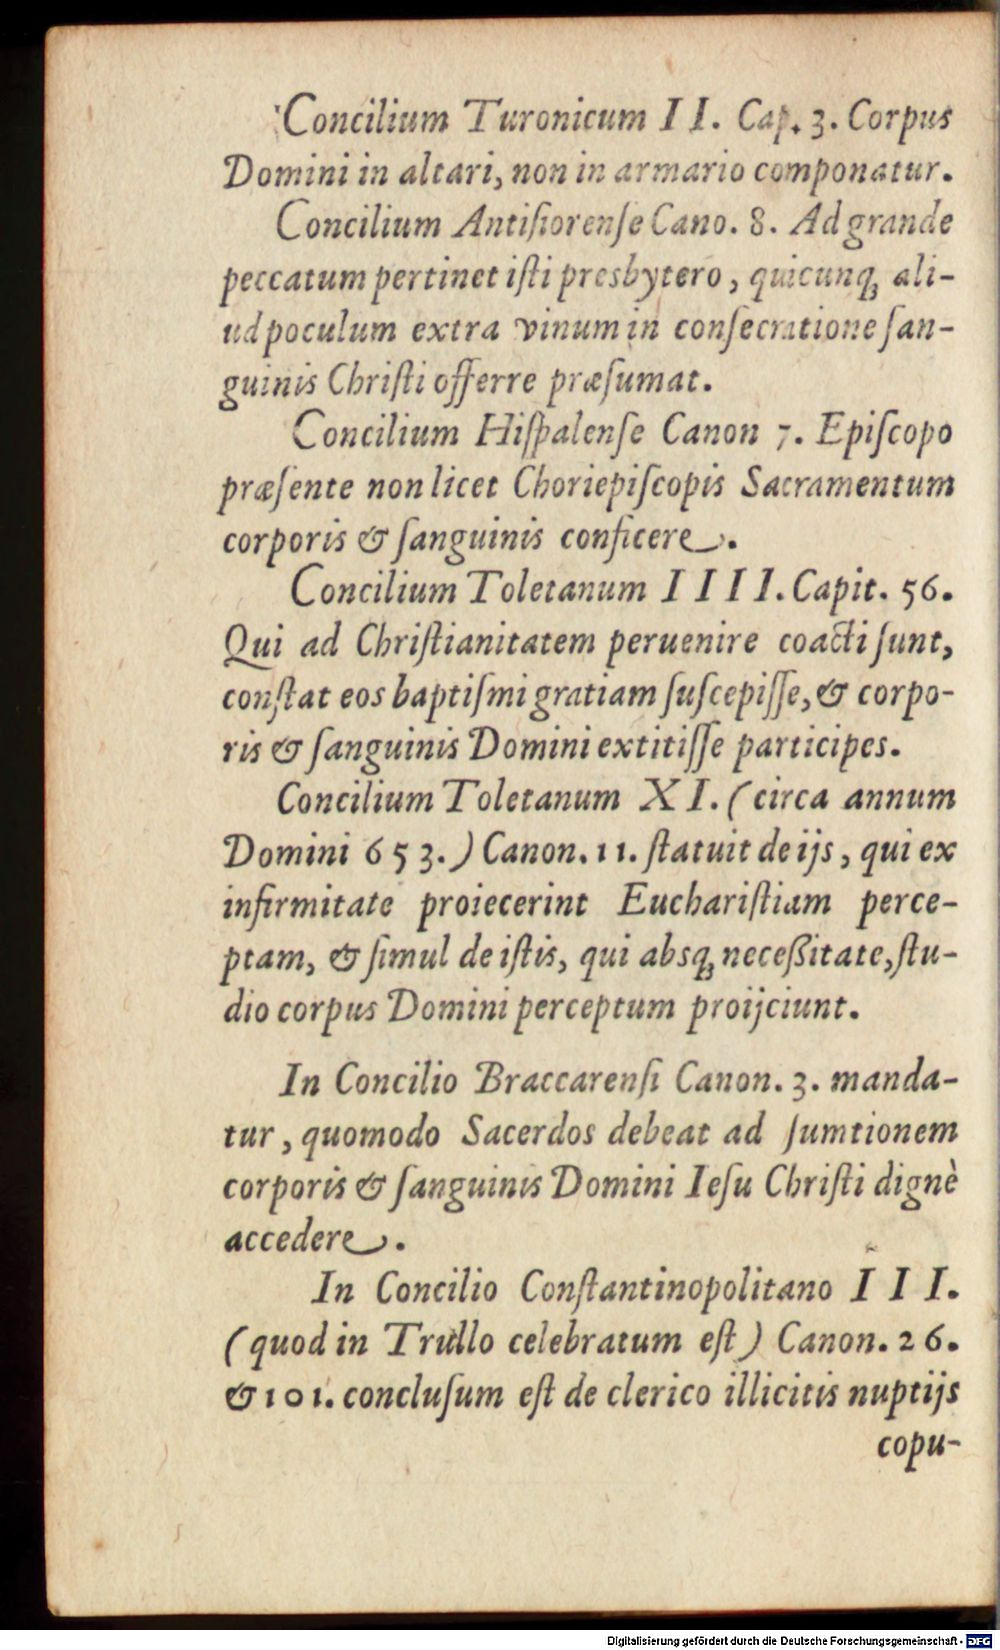 Concilium Turonicum II. Cap. 3. Corpus
Domini in altari, non in armario componatur.
Concilium Antiſiorenſe Cano. 8. Ad grande
peccatum pertinet iſti presbytero, quicunq; ali-
ud poculum extra vinum in conſecratione ſan-
guinis Chriſti offerre præſumat.
Concilium Hiſpalenſe Canon 7. Epiſcopo
præſente non licet Choriepiſcopis Sacramentum
corporis & ſanguinis conficere.
Concilium Toletanum IIII. Capit. 56.
Qui ad Chriſtianitatem peruenire coacti ſunt,
conſtat eos baptiſmi gratiam ſuſcepiſſe, & corpo-
ris & ſanguinis Domini extitiſſe participes.
Concilium Toletanum XI. (circa annum
Domini 653.) Canon. 11. ſtatuit de ijs, qui ex
infirmitate proiecerint Euchariſtiam perce-
ptam, & ſimul de iſtis, qui absq; neceßitate, ſtu-
dio corpus Domini perceptum proijciunt.
In Concilio Braccarenſi Canon. 3. manda-
tur, quomodo Sacerdos debeat ad ſumtionem
corporis & ſanguinis Domini Ieſu Chriſti dignè
accedere.
In Concilio Conſtantinopolitano III.
(quod in Trullo celebratum eſt) Canon. 26.
& 101. concluſum eſt de clerico illicitis nuptijs
copu-
Digitalisierung gefördert durch die Deutsche Forschungsgemeinschaft - DFG